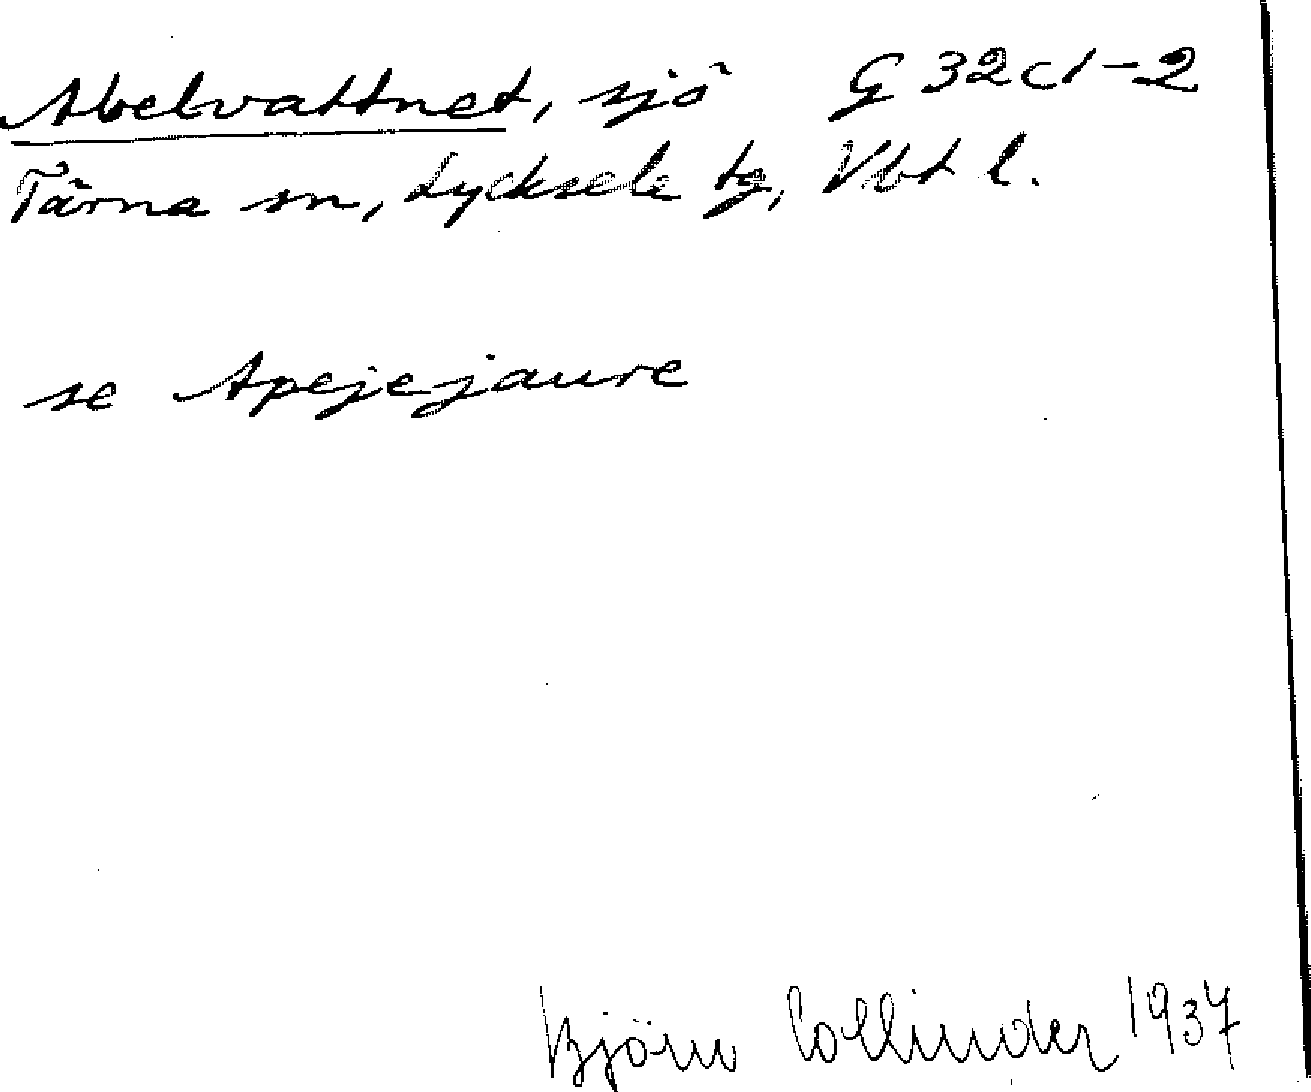 Abelvattnet, sjö G 32 c1-2
Tärna sn, Lycksele tg, Vbt l.
se Apejejaure
Björn Collinder 1937